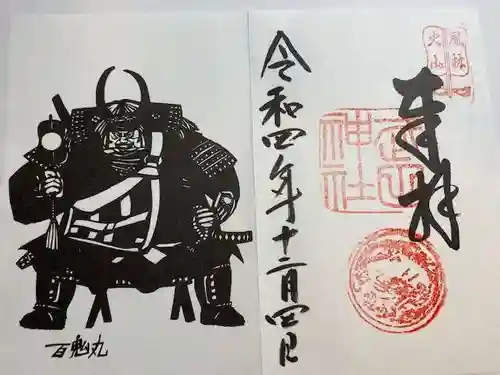 風林
火山
奉拝
武田
神社
令和四年十二月四日
百鬼丸